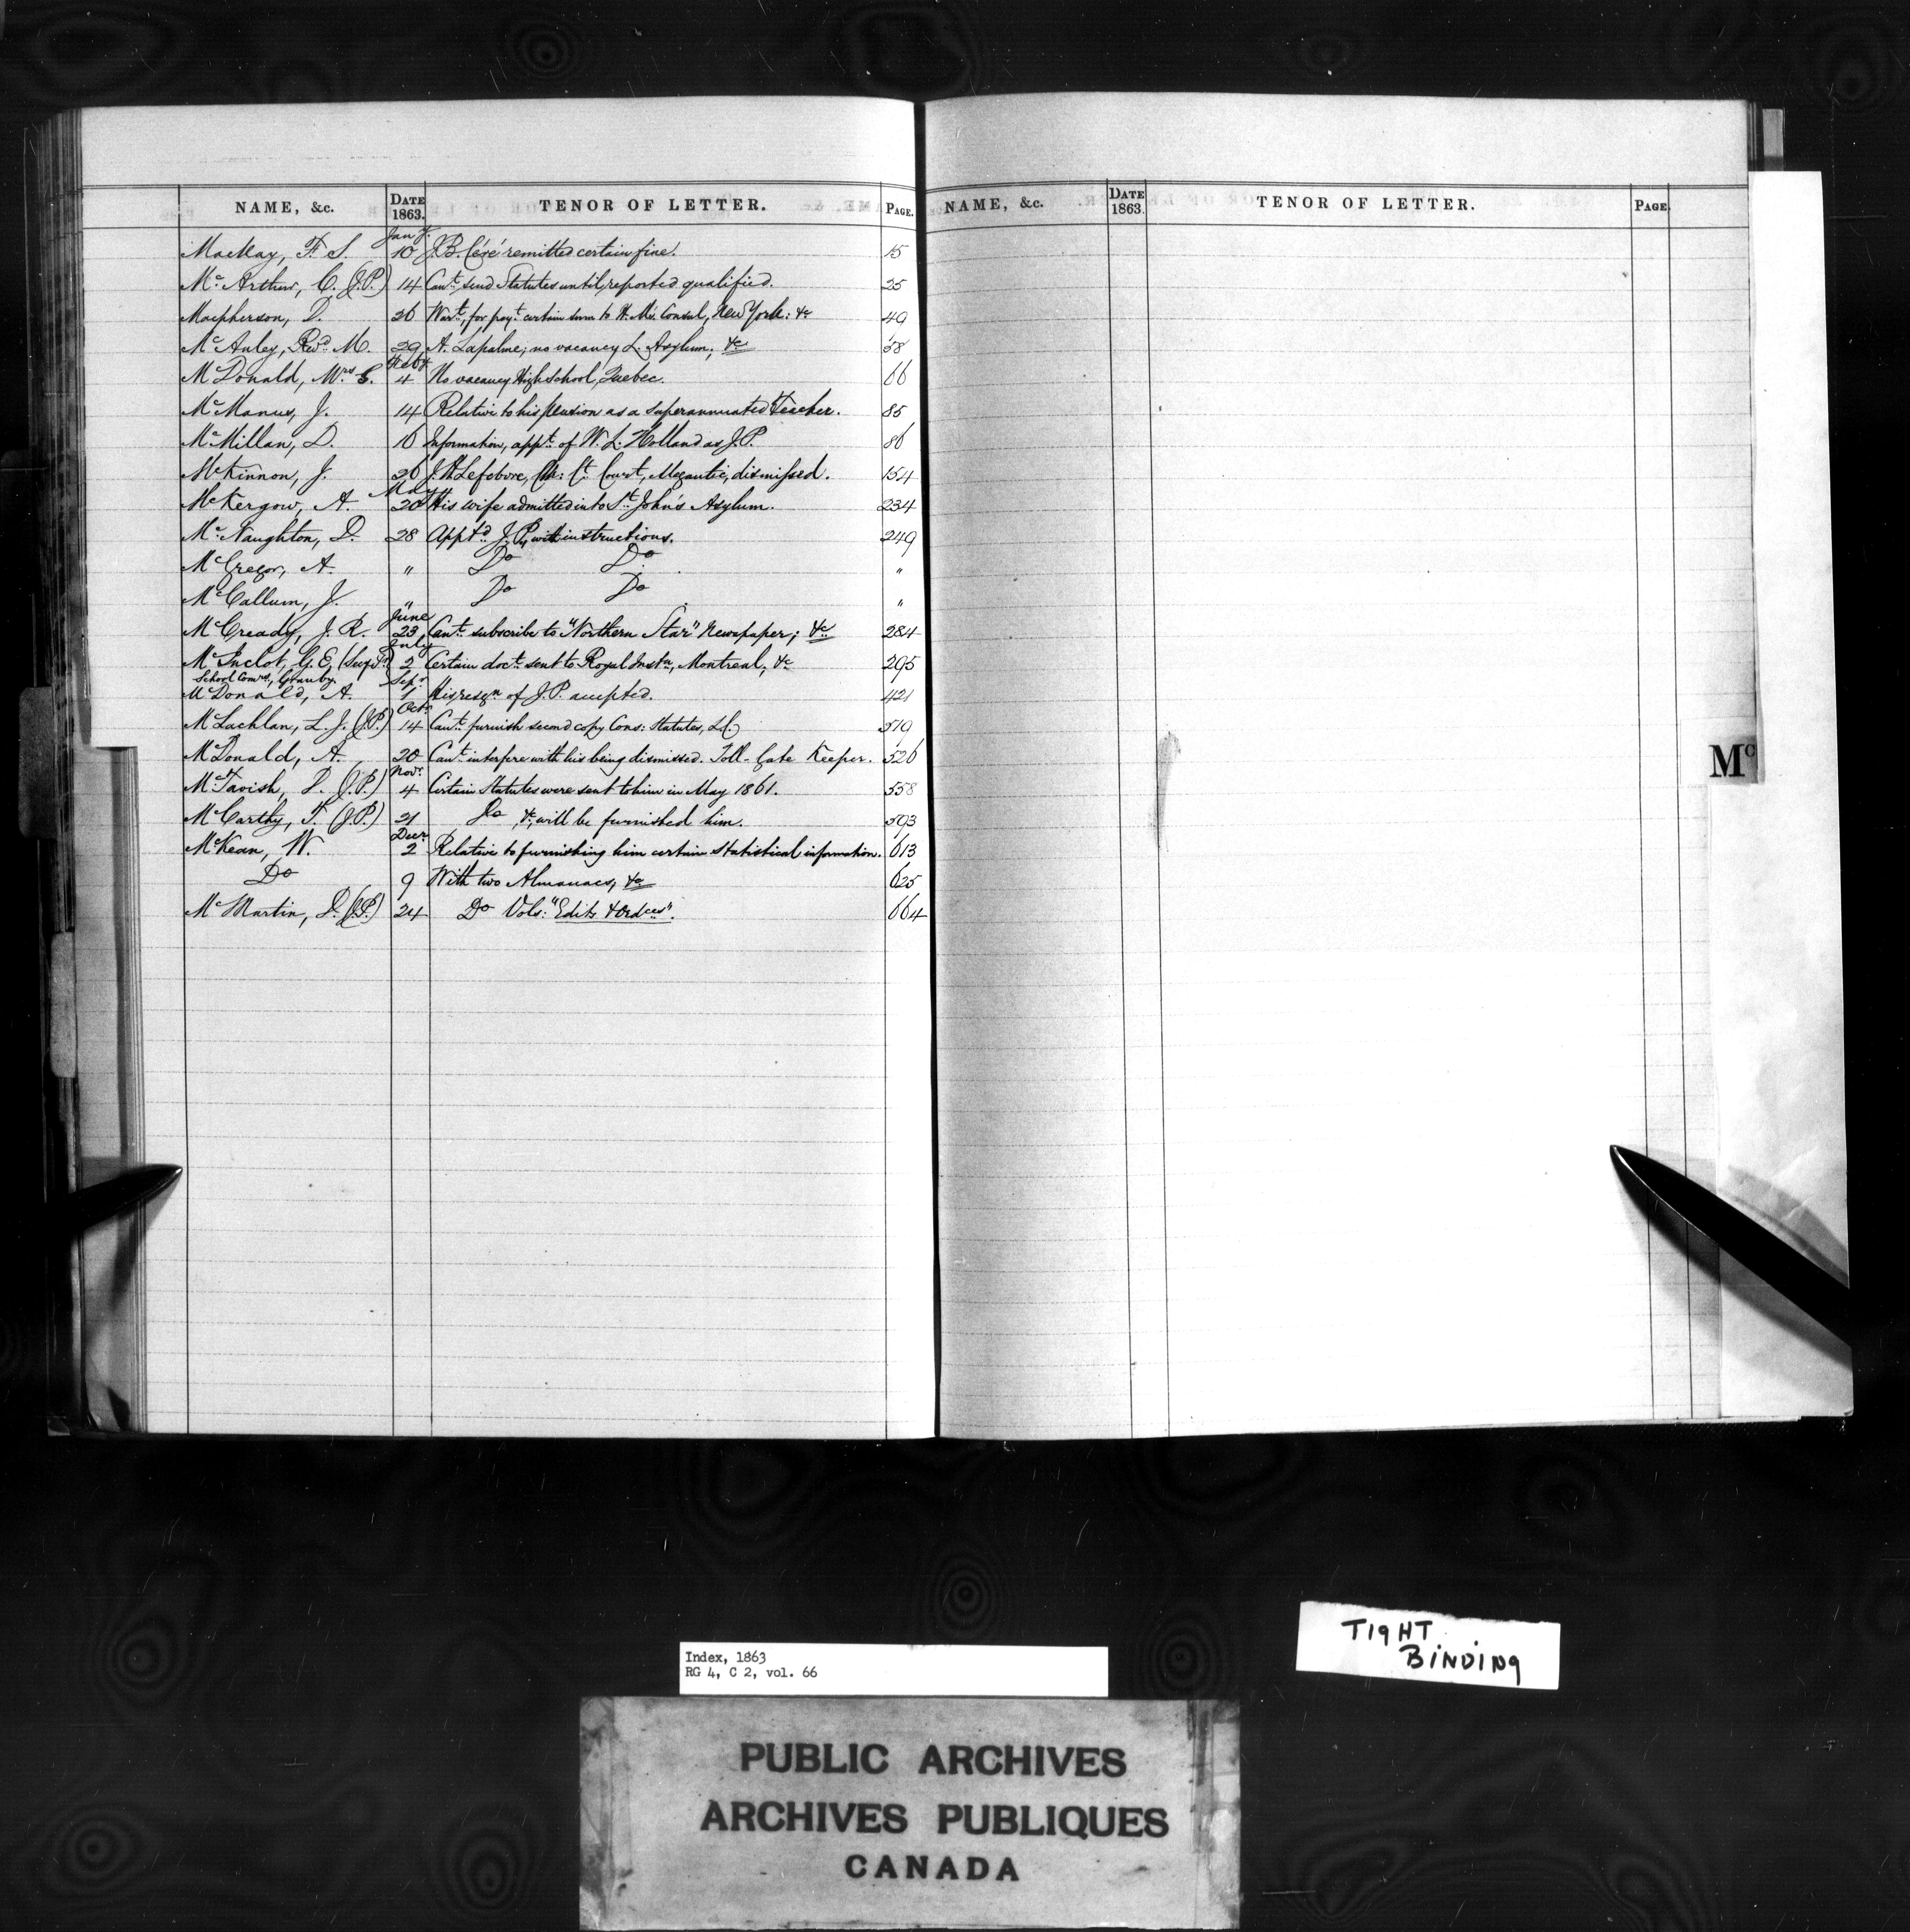 NAME, &c. DATE 1863. TENOR OF LETTER. PAGE.
Jany.
MacKay, F. S. 10 J. B. Céré remitted certain fine. 15
Mc Arthur, C. (J.P.) 14 Cant. send Statutes until reported qualified. 25
Macpherson, D. 26 Wart. for payt. certain sum to H. Ms. Consul, New York: &c 49
Mc Auley, Revd. M. 29 A. Lapalme; no vacancy L. Asylum, &c 58
Feby
Mc Donald, Mrs 4 No vacancy High School, Quebec. 66
Mc Manus, J. 14 Relative to his pension as a superannuated Teacher. 85
Mc Millan, D. 16 Information, appt. of W. L. Holland as J.P. 86
McKinnon, J. 26 Lefebvre, Ct. Court, Megantic, dismissed. 154
May
McKergow, A. 20 His wife admitted into St. John's Asylum. 234
Mc Naughton, D. 28 Apptd. J.P., with instructions. 249
McGregor, A. " Do Do "
McCallum, J. " Do Do "
June
McCready, J. R. 23 Cant. subscribe to "Northern Star" Newspaper; &c 284
July
Mc G. E, 2 Certain doct. sent to Royal Instn, Montreal, &c 295
School Coms., Granby. Sepr
McDonald, A. 1 His resgn of J.P. accepted. 421
Octr
McLachlan, L. J. (J.P.) 14 Cant. furnish second copy Cons: Statutes, L.C. 519
McDonald, A. 20 Cant. interfere with his being dismissed. Toll-Gate Keeper. 526
Novr
McTavish, D. (J.P.) 4 Certain Statutes were sent to him in May 1861. 558
McCarthy, T. (J.P.) 21 Do, &c, will be furnished him. 593
Decr
McKean, W. 2 Relative to furnishing him certain statistical information. 613
Do 9 With two Almanacs, &c 625
McMartin, D. (J.P.) 24 Do Vols: "Edits & Ordces". 664
NAME, &c. DATE 1863. TENOR OF LETTER. PAGE.
Mc
TIGHT
BINDING
Index, 1863
RG 4, C 2, vol. 66
PUBLIC ARCHIVES
ARCHIVES PUBLIQUES
CANADA